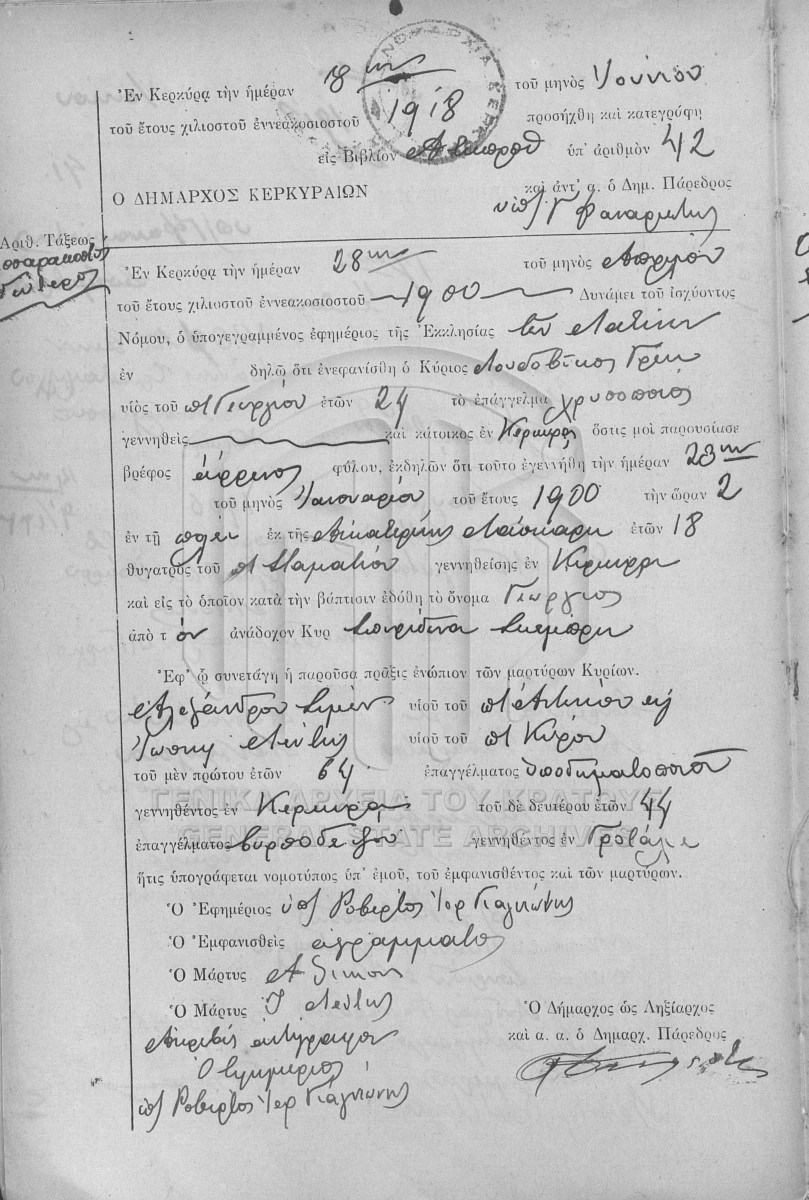 Ἐν Κερκύρᾳ τὴν ἡμέραν 18ην τοῦ μηνὸς Ἰουνίου
τοῦ ἔτους χιλιοστοῦ ἐννεακοσιοστοῦ 1918 προσήχθη καὶ κατεγράφη
εἰς Βιβλίον ὑπ' ἀριθμὸν 42
Ο ΔΗΜΑΡΧΟΣ ΚΕΡΚΥΡΑΙΩΝ
καὶ ἀντ' α. ὁ Δημ. Πάρεδρος
Ἀριθ. Τάξεως
Ἐν Κερκύρᾳ τὴν ἡμέραν 28ην τοῦ μηνὸς Ἀπριλίου
τοῦ ἔτους χιλιοστοῦ ἐννεακοσιοστοῦ 1900 Δυνάμει τοῦ ἰσχύοντος
Νόμου, ὁ ὑπογεγραμμένος ἐφημέριος τῆς Ἐκκλησίας τῶν Λατίνων
ἐν δηλῶ ὅτι ἐνεφανίσθη ὁ Κύριος Λουδοβίκος
υἱὸς τοῦ π Γεωργίου ἐτῶν 24 τὸ ἐπάγγελμα χρυσοποιός
γεννηθεὶς καὶ κάτοικος ἐν Κερκύρᾳ ὅστις μοὶ παρουσίασε
βρέφος ἄρρενος φύλου, ἐκδηλῶν ὅτι τοῦτο ἐγεννήθη τὴν ἡμέραν 23ην
τοῦ μηνὸς Ἰανουαρίου τοῦ ἔτους 1900 τὴν ὥραν 2
ἐν τῇ πόλει ἐκ τῆς Αἰκατερίνης Λάσκαρη ἐτῶν 18
θυγατρὸς τοῦ π Σταματίου γεννηθείσης ἐν Κερκύρᾳ
καὶ εἰς τὸ ὁποῖον κατὰ τὴν βάπτισιν ἐδόθη τὸ ὄνομα Γεώργιος
ἀπὸ τ όν ἀνάδοχον Κυρ Σπυρίδωνα
Ἐφ' ᾧ συνετάγη ἡ παροῦσα πρᾶξις ἐνώπιον τῶν μαρτύρων Κυρίων.
Ἀλεξάνδρου υἱοῦ τοῦ π Ἀντωνίου
υἱοῦ τοῦ π
τοῦ μὲν πρώτου ἐτῶν 64 ἐπαγγέλματος ὑποδηματοποιοῦ
γεννηθέντος ἐν Κερκύρᾳ τοῦ δὲ δευτέρου ἐτῶν 44
ἐπαγγέλματος γεννηθέντος ἐν
ἥτις ὑπογράφεται νομοτύπως ὑπ' ἐμοῦ, τοῦ ἐμφανισθέντος καὶ τῶν μαρτύρων.
Ὁ Ἐφημέριος ὑπ Ροβέρτος Ἱερ
Ὁ Ἐμφανισθεὶς ἀγράμματος
Ὁ Μάρτυς
Ὁ Μάρτυς
Ὁ Δήμαρχος ὡς Ληξίαρχος
καὶ α. α. ὁ Δημαρχ. Πάρεδρος
Ἀκριβές ἀντίγραφον
Ὁ ἐφημέριος
ὑπ Ροβέρτος Ἱερ
ΓΕΝΙΚΑ ΑΡΧΕΙΑ ΤΟΥ ΚΡΑΤΟΥΣ
GENERAL STATE ARCHIVES